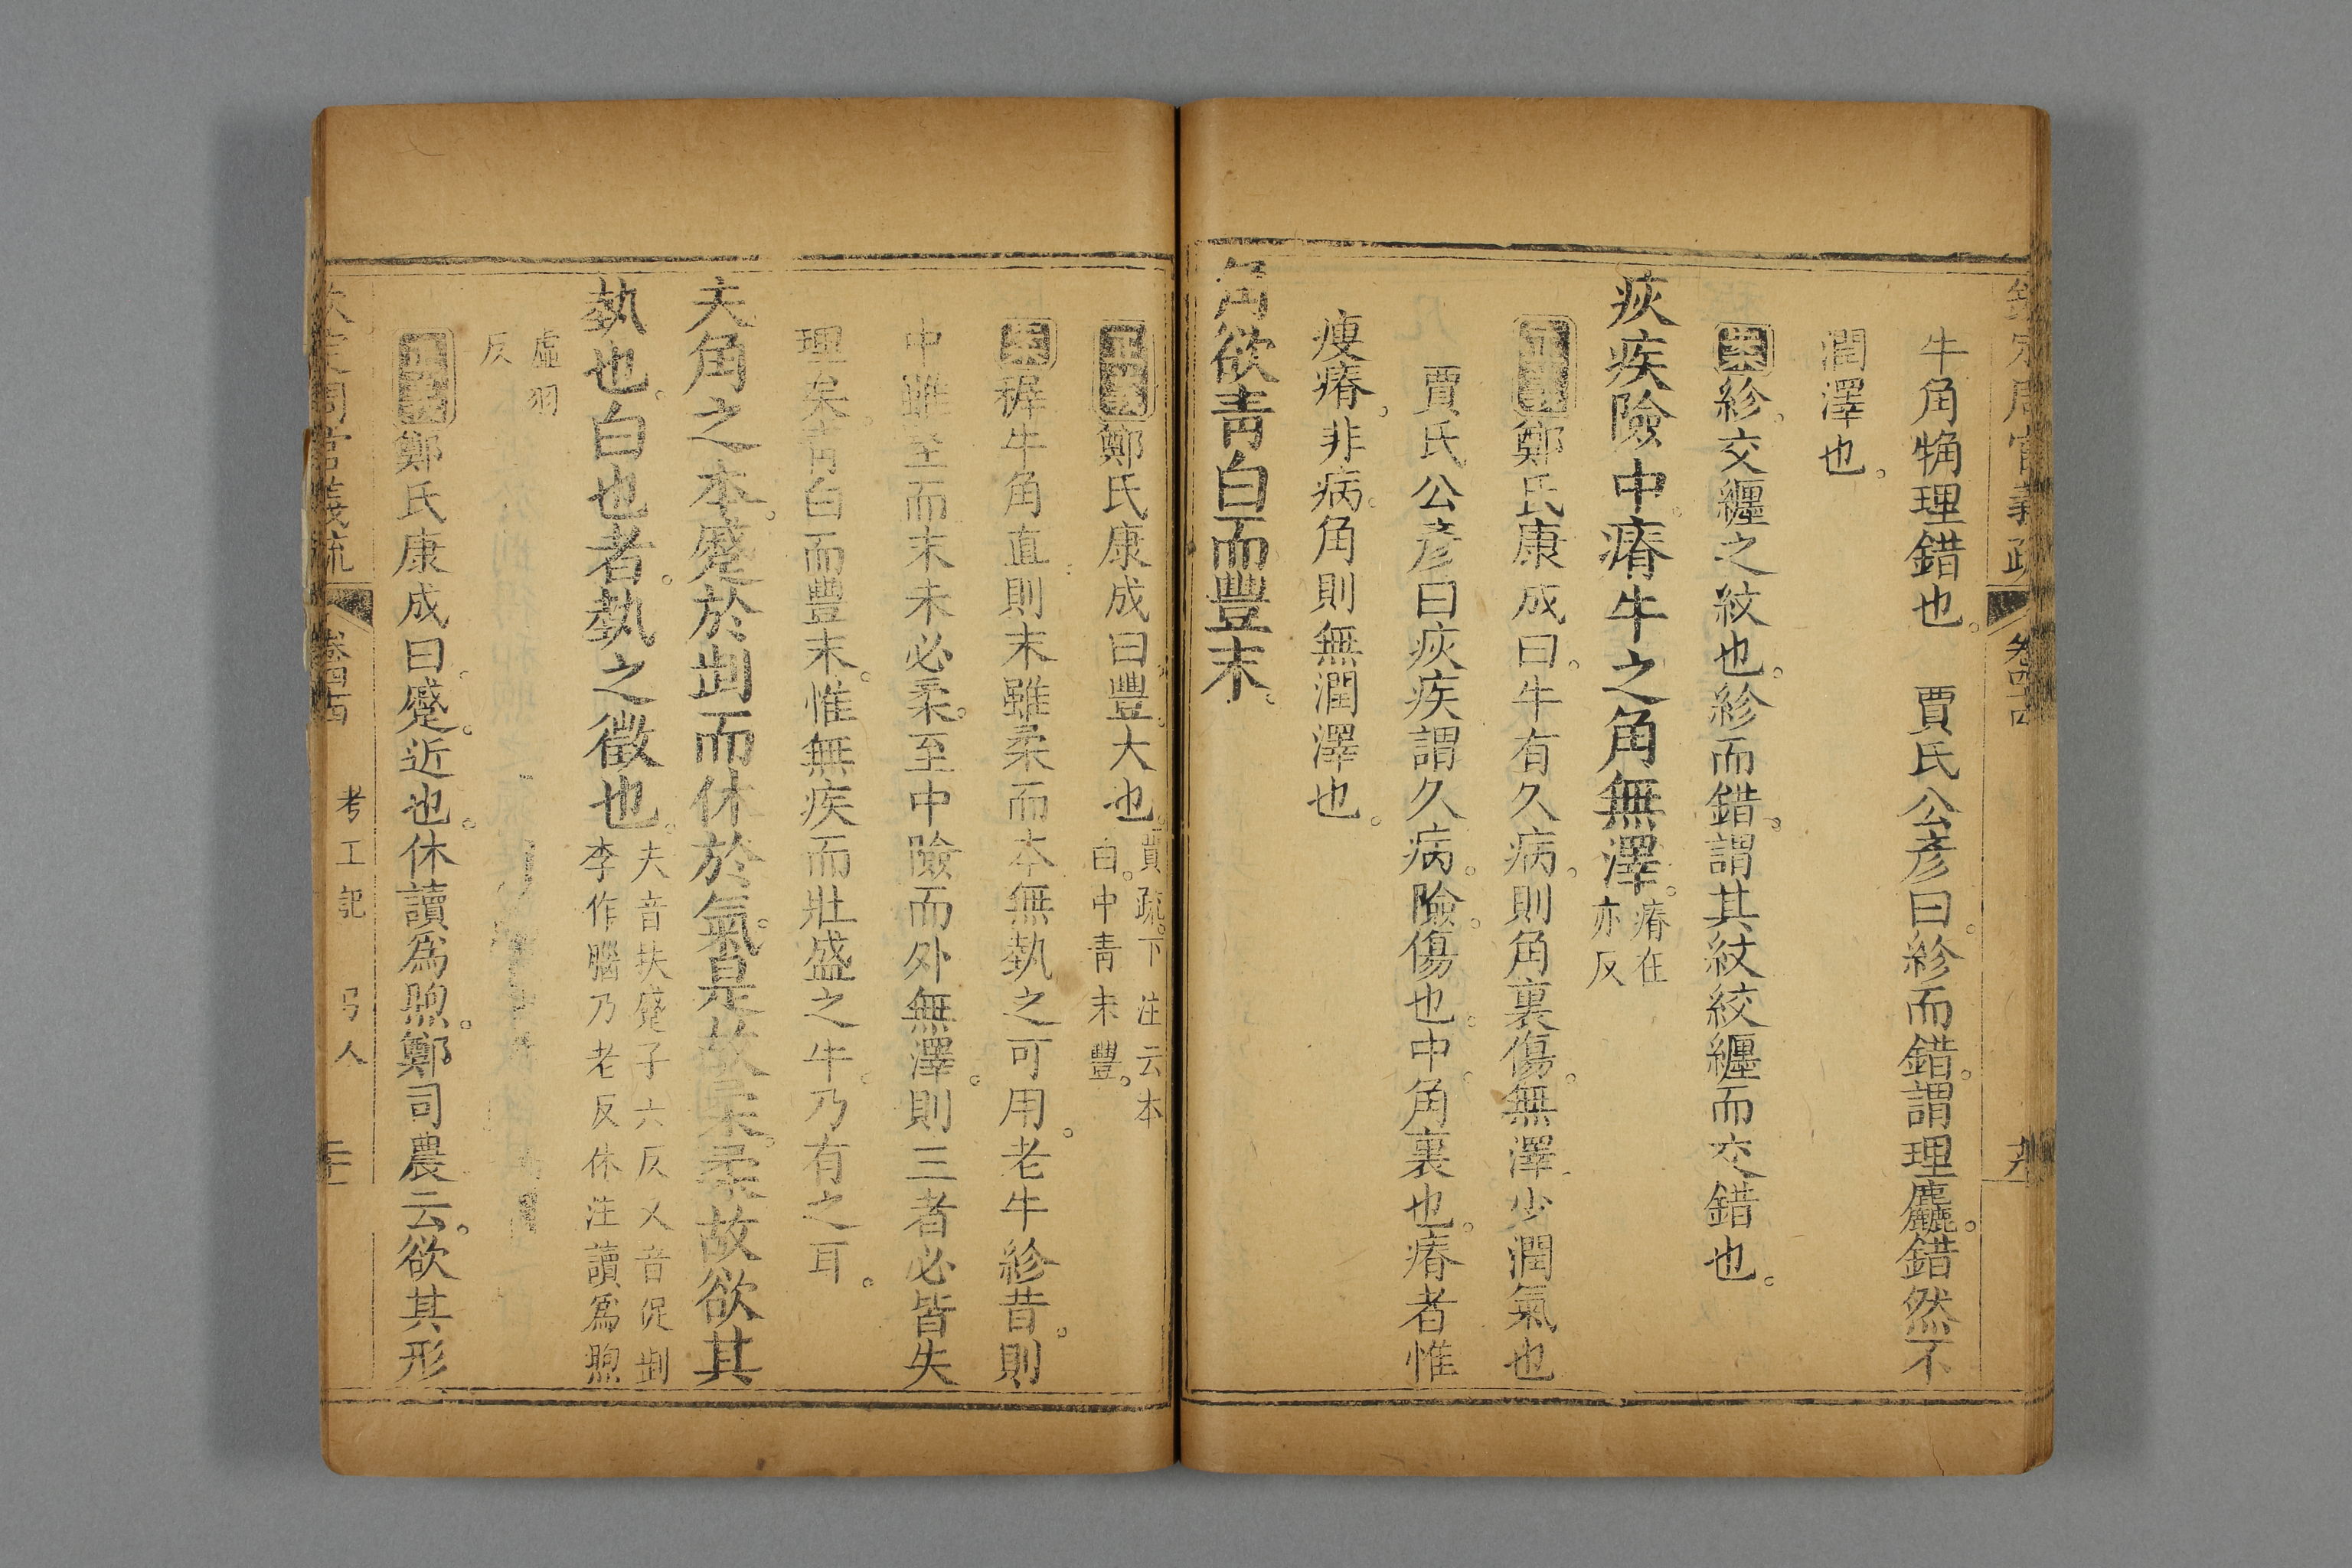 牛角觕理錯也。　賈氏公彥曰。紾而錯。謂理麤。錯然不
潤澤也。
案紾。交纏之紋也。紾而錯。謂其紋絞纏而交錯也。
疢疾險中。瘠牛之角無澤。瘠在
亦反
正義鄭氏康成曰。牛有久病。則角裏傷。無澤。少潤氣也
賈氏公彥曰疢疾謂久病。險。傷也。中。角裏也。瘠者惟
瘦瘠。非病。角則無潤澤也。
角欲青白而豐末。
正義鄭氏康成曰豐。大也。賈疏。下注云本
白。中青。末豐。
案穉牛角直。則末雖柔而本無埶之可用。老牛紾昔。則
中雖至而末未必柔。至中險而外無澤。則三者必皆失
理矣。青白而豐末。惟無疾而壯盛之牛。乃有之耳。
夫角之本。蹙於𠜶而休於氣。是故柔。柔故欲其
埶也。白也者。埶之徵也。夫音扶蹙子六反又音促𠜶
李作腦乃老反休注讀爲煦
虛羽
反
正義鄭氏康成曰。蹙。近也。休讀爲煦。鄭司農云。欲其形
欽定周官義疏　卷四十四　考工記　弓人